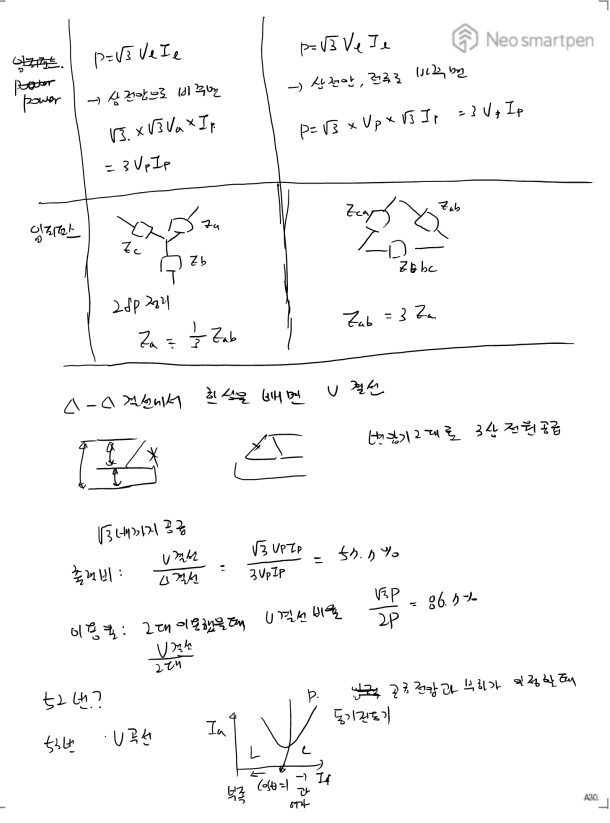 Neo smartpen
power
P=√3 Vl Il
→ 상전압으로 비교하면
√3 × √3 Va × Ip
= 3 Vp Ip
P=√3 Vl Il
→ 상전압, 전류로 비교하면
P=√3 × Vp × √3 Ip = 3 Vp Ip
임피던스
Zc Za
Zb
28p 정리
Za = 1/3 Zab
Zca Zab
Zbc
Zab = 3 Za
△-△ 결선에서 한상을 빼면 V 결선
변압기 2대로 3상 전원 공급
√3배까지 공급
출력비 : V결선/△결선 = √3 VpIp/3VpIp = 57.7%
이용률 : 2대 이용했을때 V결선 비율 √3P/2P = 86.7%
V결선/2대
52번.?
53번 · V곡선
Ia
P.
공급전압과 부하가 일정할때
동기전동기
L C
부족 ← cosθ=1 → 과여자 If
A30.